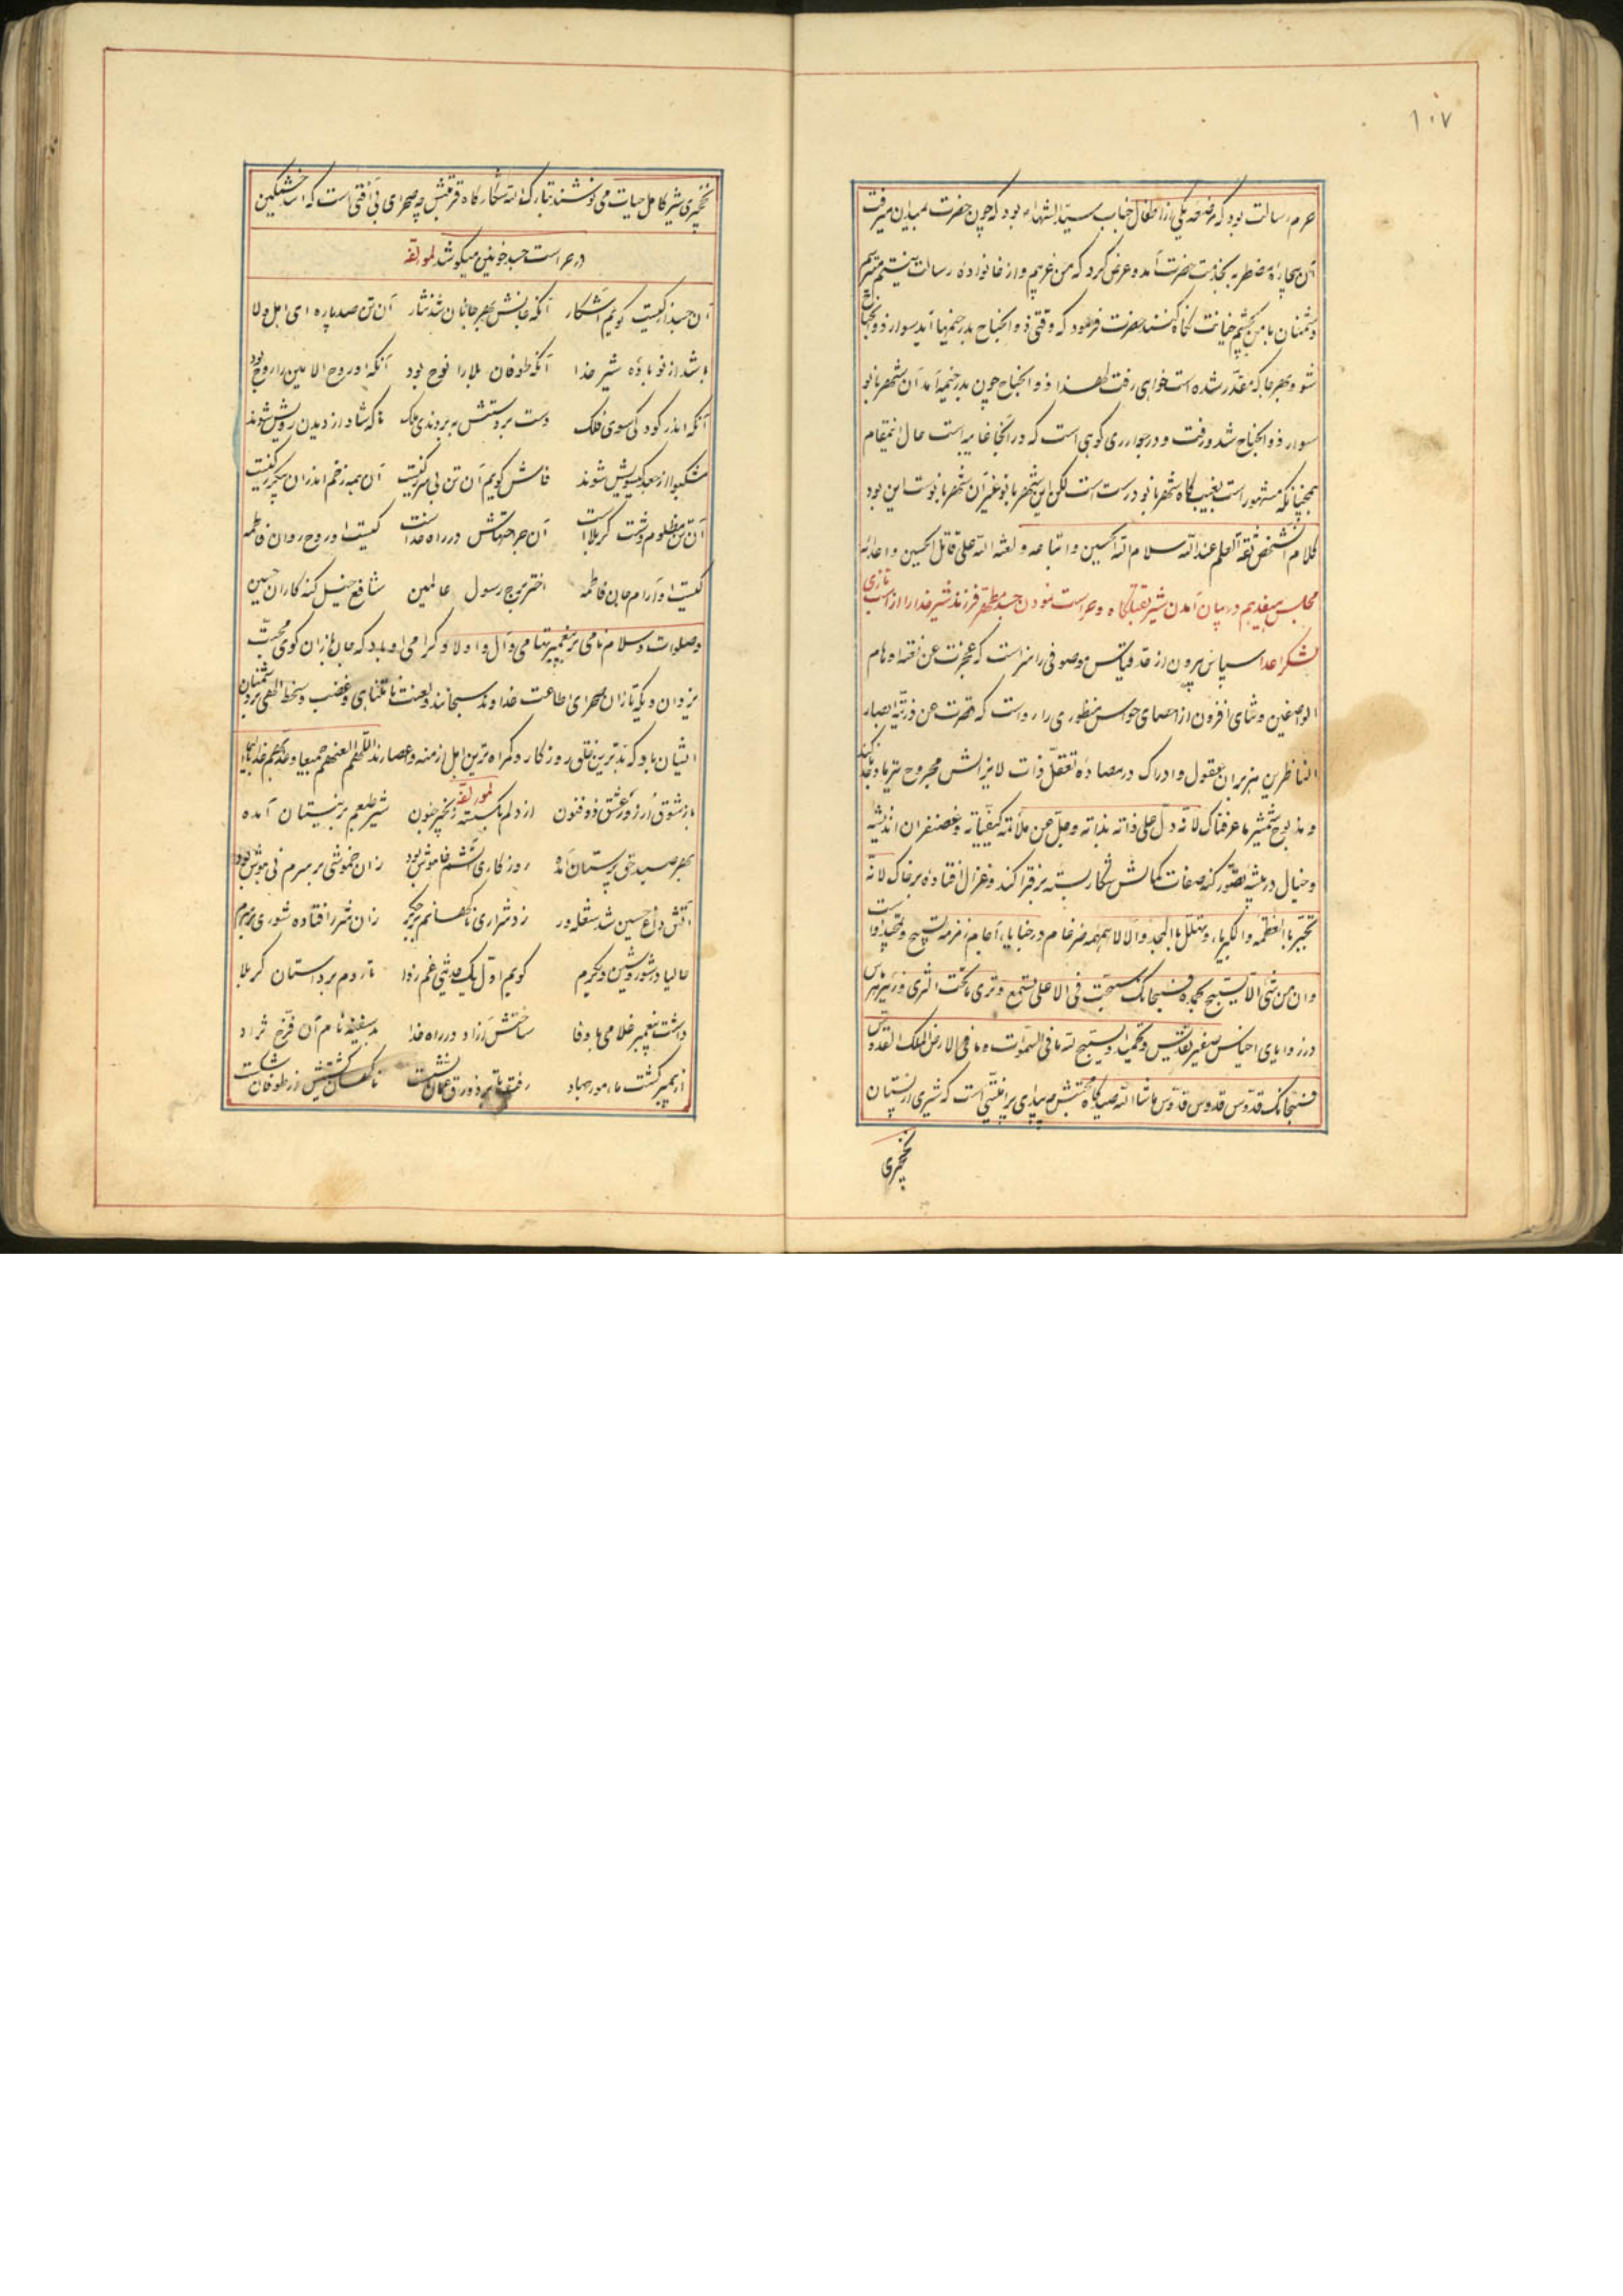 ۱۰۷
حرم رسالت بود که مرضعه یکی از اطفال جناب سید الشهداء بود که چون حضرت بمیدان میرفت
آن بیچاره مضطربه بخدمت حضرت آمد و عرض کرد که من غریبم و از خانواده رسالت نیستم میترسم
دشمنان با من بچشم خیانت نگاه کنند حضرت فرمود که وقتی ذو الجناح بدر خیمها آید سوار ذو الجناح
شو و بهر جا که مقدر شده است خواهی رفت لهذا ذو الجناح چون بدر خیمه آمد آن شهربانو
سوار ذو الجناح شد و رفت و در جوار ری کوهی است که در آنجا غایبه است حال اینمقام
همچنانکه مشهور است بغیب گاه شهربانو درست است لکن این شهربانو غیر آن شهربانوست این بود
کلام الشخص ثقه العلم عند الله سلام الله الحسین و اتباعه و لعنه الله علی قاتل الحسین و اعدائه
مجلس هفدهم در بیان آمدن شیر بقتلگاه و حراست نمودن جسد مطهر فرزند شیر خدا را از اسب تازی
لشکر اعدا سپاس بیرون از حد و قیاس موصوفی را سزاست که عجزت عن نعته اوهام
الواصفین و ثنای افزون از احصای حواس منظوری را رواست که قصرت عن رؤیته ابصار
الناظرین هزبران عقول و ادراک در مصاده تعقل ذات لایزالش مجروح تیر
و مذبوح شمشیر ما عرفناک لانه دل علی ذاته بذاته و جل عن ملائمة کیفیاته و غضنفران اندیشه
و خیال در بیشه تصور کنه صفات کمالش شکار بسته بر فتراکند و غزال افتاده بر خاک لانه
تجبر بالعظمه و الکبریاء و تهلل بالمجد و الالاء همهمه ضرغام در خبایای آجام زمزمه تسبیح و تمجید اوست
وان من شیء الا یسبح بحمده فسبحانک سبحت فی الاعلی تسمع و تری ما تحت الثری و زئیر هرماس
در زوایای اخیاس صفیر تقدیس و تحمید او یسبح لله ما فی السموات و ما فی الارض الملک القدوس
فسبحانک قدوس قدوس قدوس ماشاء الله صیدگاه محبتش چه بیدای پر آفتی است که شیری از نیستان
نخچیری
نخچیری شیر کامل حیات می‌نوشند تبارک الله شکارگاه قربتش چه صحرای بی آفتی است که اسد خشمگین
در حراست جسد خونین میکوشد لمؤلفه
آن جسد از کیست گویم آشکار آنکه جانش بهر جانان شد نثار آن تن صد پاره ای اهل ولا
باشد از نوباوه شیر خدا آنکه طوفان بلا را نوح بود آنکه او روح الامین را روح بود
آنکه اندر کودکی سوی فلک دست بر دستش به بردندی ملک تا که شاد از دیدن رویش شوند
مشکبو از جعد گیسویش شوند فاش گویم آن تن بی سر ز کیست آن همه زخم اندر آن پیکر ز کیست
آن تن مظلوم دشت کربلا است آن جراحتهاش در راه خداست کیست او روح روان فاطمه
کیست او آرام جان فاطمه اختر برج رسول عالمین شافع خیل گنه کاران حسین
و صلوات و سلام نامی بر پیغمبر تهامی و آل و اولاد گرامی او باد که جانبازان کوی محبت
یزدان و یکه تازان صحرای اطاعت خداوند سبحانند و لعنت نامتناهی و غضب و سخط الهی بر دشمنان
ایشان باد که بدترین خلق روزگار و گمراه ترین اهل ازمنه و اعصارند اللهم العنهم جمیعا و عذبهم عذابا الیما
لمؤلفه
باز شوق آرزو عشق ذو فنون از دلم بگسسته زنجیر جنون شیر طبعم بر نیستان آمده
بهر صید حق پرستان آمده روزگاری آتشم خاموش بود زان خموشی بر سرم نی هوش بود
آتش داغ حسین شد شعله ور زد شراری ناگهانم بر جگر زان شرر افتاده شوری بر سرم
حالیا در شور و شین دیگرم گویم اول یک حدیثی غم رزا تا روم بر داستان کربلا
داشت پیغمبر غلامی با وفا ساختش آزاد در راه خدا بد سفینه نام آن فرخ نژاد
از پیمبر گشت مامور جهاد رفت تا بر زورق عمان نشست ناگهان کشتیش از طوفان شکست